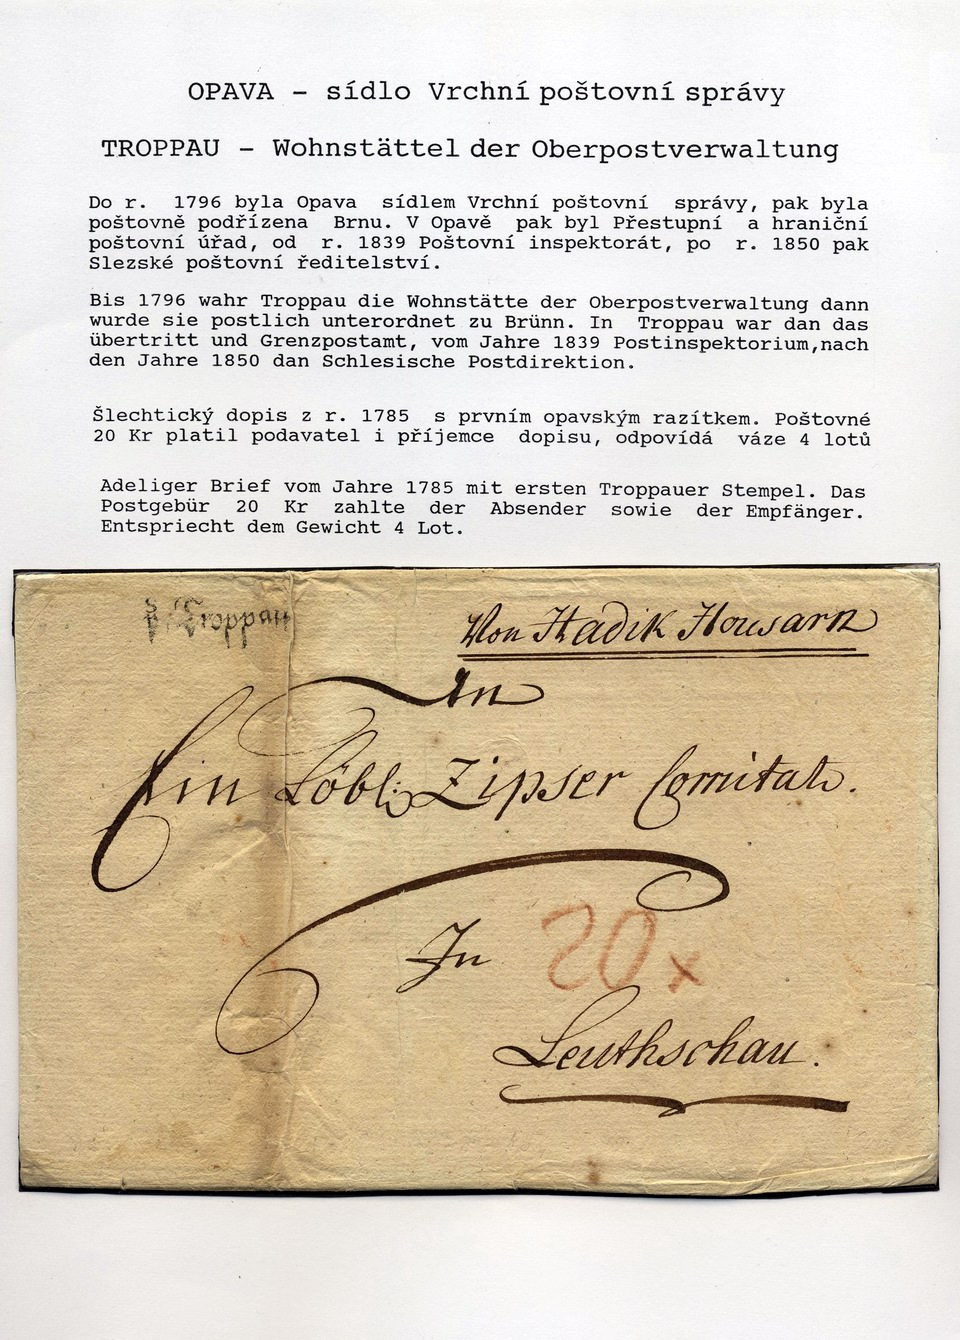 OPAVA - sídlo Vrchní poštovní správy
TROPPAU - Wohnstättel der Oberpostverwaltung
Do r. 1796 byla Opava sídlem Vrchní poštovní správy, pak byla
poštovně podřízena Brnu. V Opavě pak byl Přestupní a hraniční
poštovní úřad, od r. 1839 Poštovní inspektorát, po r. 1850 pak
Slezské poštovní ředitelství.
Bis 1796 wahr Troppau die Wohnstätte der Oberpostverwaltung dann
wurde sie postlich unterordnet zu Brünn. In Troppau war dan das
übertritt und Grenzpostamt, vom Jahre 1839 Postinspektorium,nach
den Jahre 1850 dan Schlesische Postdirektion.
Šlechtický dopis z r. 1785 s prvním opavským razítkem. Poštovné
20 Kr platil podavatel i příjemce dopisu, odpovídá váze 4 lotů
Adeliger Brief vom Jahre 1785 mit ersten Troppauer Stempel. Das
Postgebür 20 Kr zahlte der Absender sowie der Empfänger.
Entspriecht dem Gewicht 4 Lot.
Troppau
Von Hadik Housarn
An
Ein Löbl: Zipser Comitat.
In
20 x
Leuthschau.